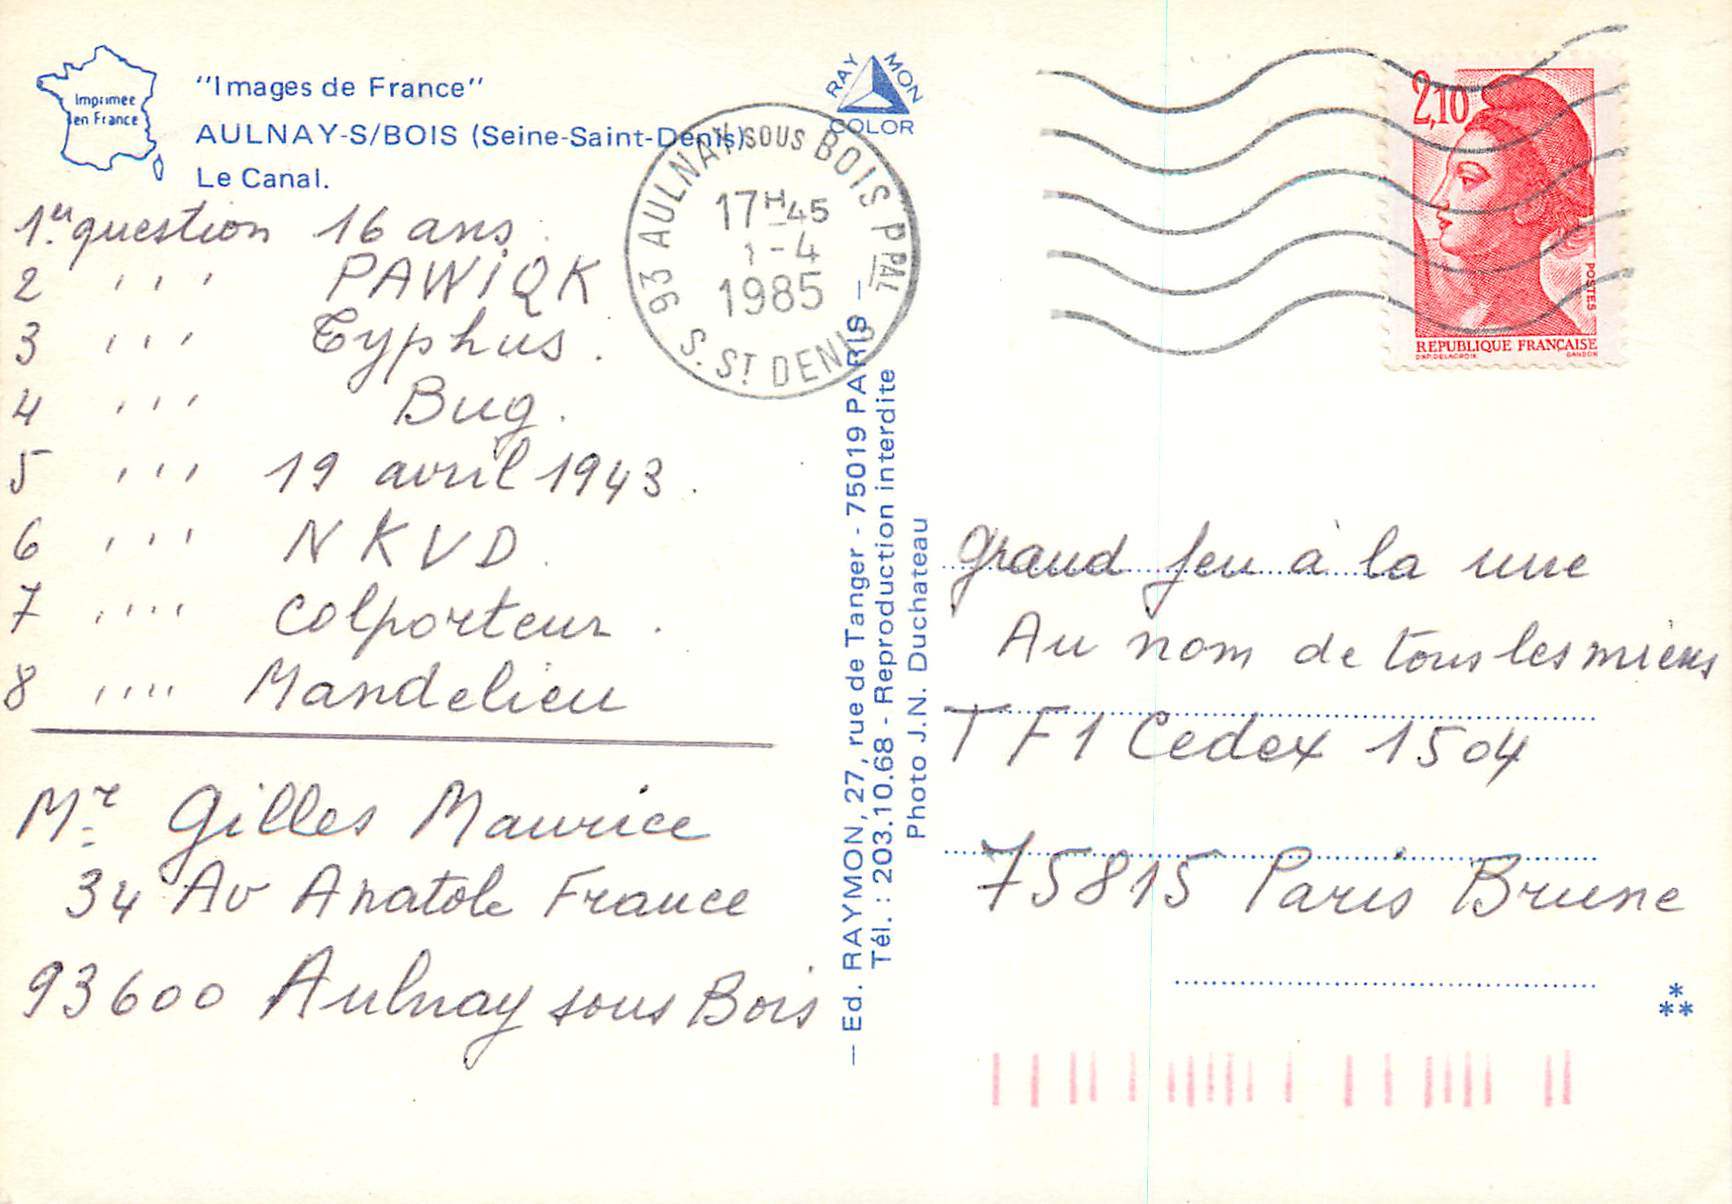 Imprimée
en France
"Images de France"
AULNAY-S/BOIS (Seine-Saint-Denis)
Le Canal.
RAYMON
COLOR
93 AULNAY SOUS BOIS PPAL
17H45
1-4
1985
S. ST DENIS
2,10
POSTES
REPUBLIQUE FRANÇAISE
D'AP. DELACROIX GANDON
1er question 16 ans.
2 ' ' ' PAWIQK
3 ' ' ' Typhus.
4 ' ' ' Bug.
5 ' ' ' 19 avril 1943.
6 ' ' ' NKVD.
7 ' ' ' ' Colporteur.
8 ' ' ' ' Mandelieu
Mr Gilles Maurice
34 Av Anatole France
93600 Aulnay sous Bois
— Ed. RAYMON, 27, rue de Tanger - 75019 PARIS —
Tél. : 203.10.68 - Reproduction interdite
Photo J.N. Duchateau
grand jeu à la une
Au nom de tous les miens
TF1 Cedex 1504
75815 Paris Brune